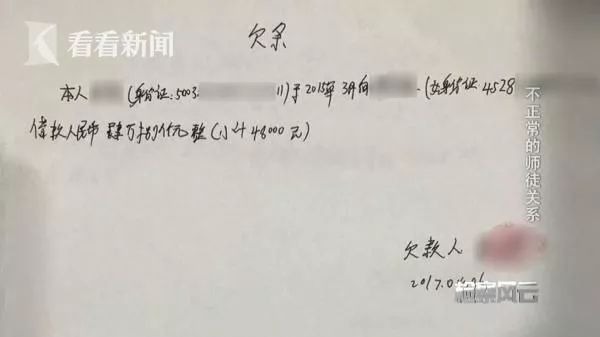 看看新闻
欠条
本人 (身份证:5003 11)于2015年3月向 (女身份证4528
借款人民币 肆万捌仟元整(小计48000元)
不正常的师徒关系
欠款人
2017.0
检察风云